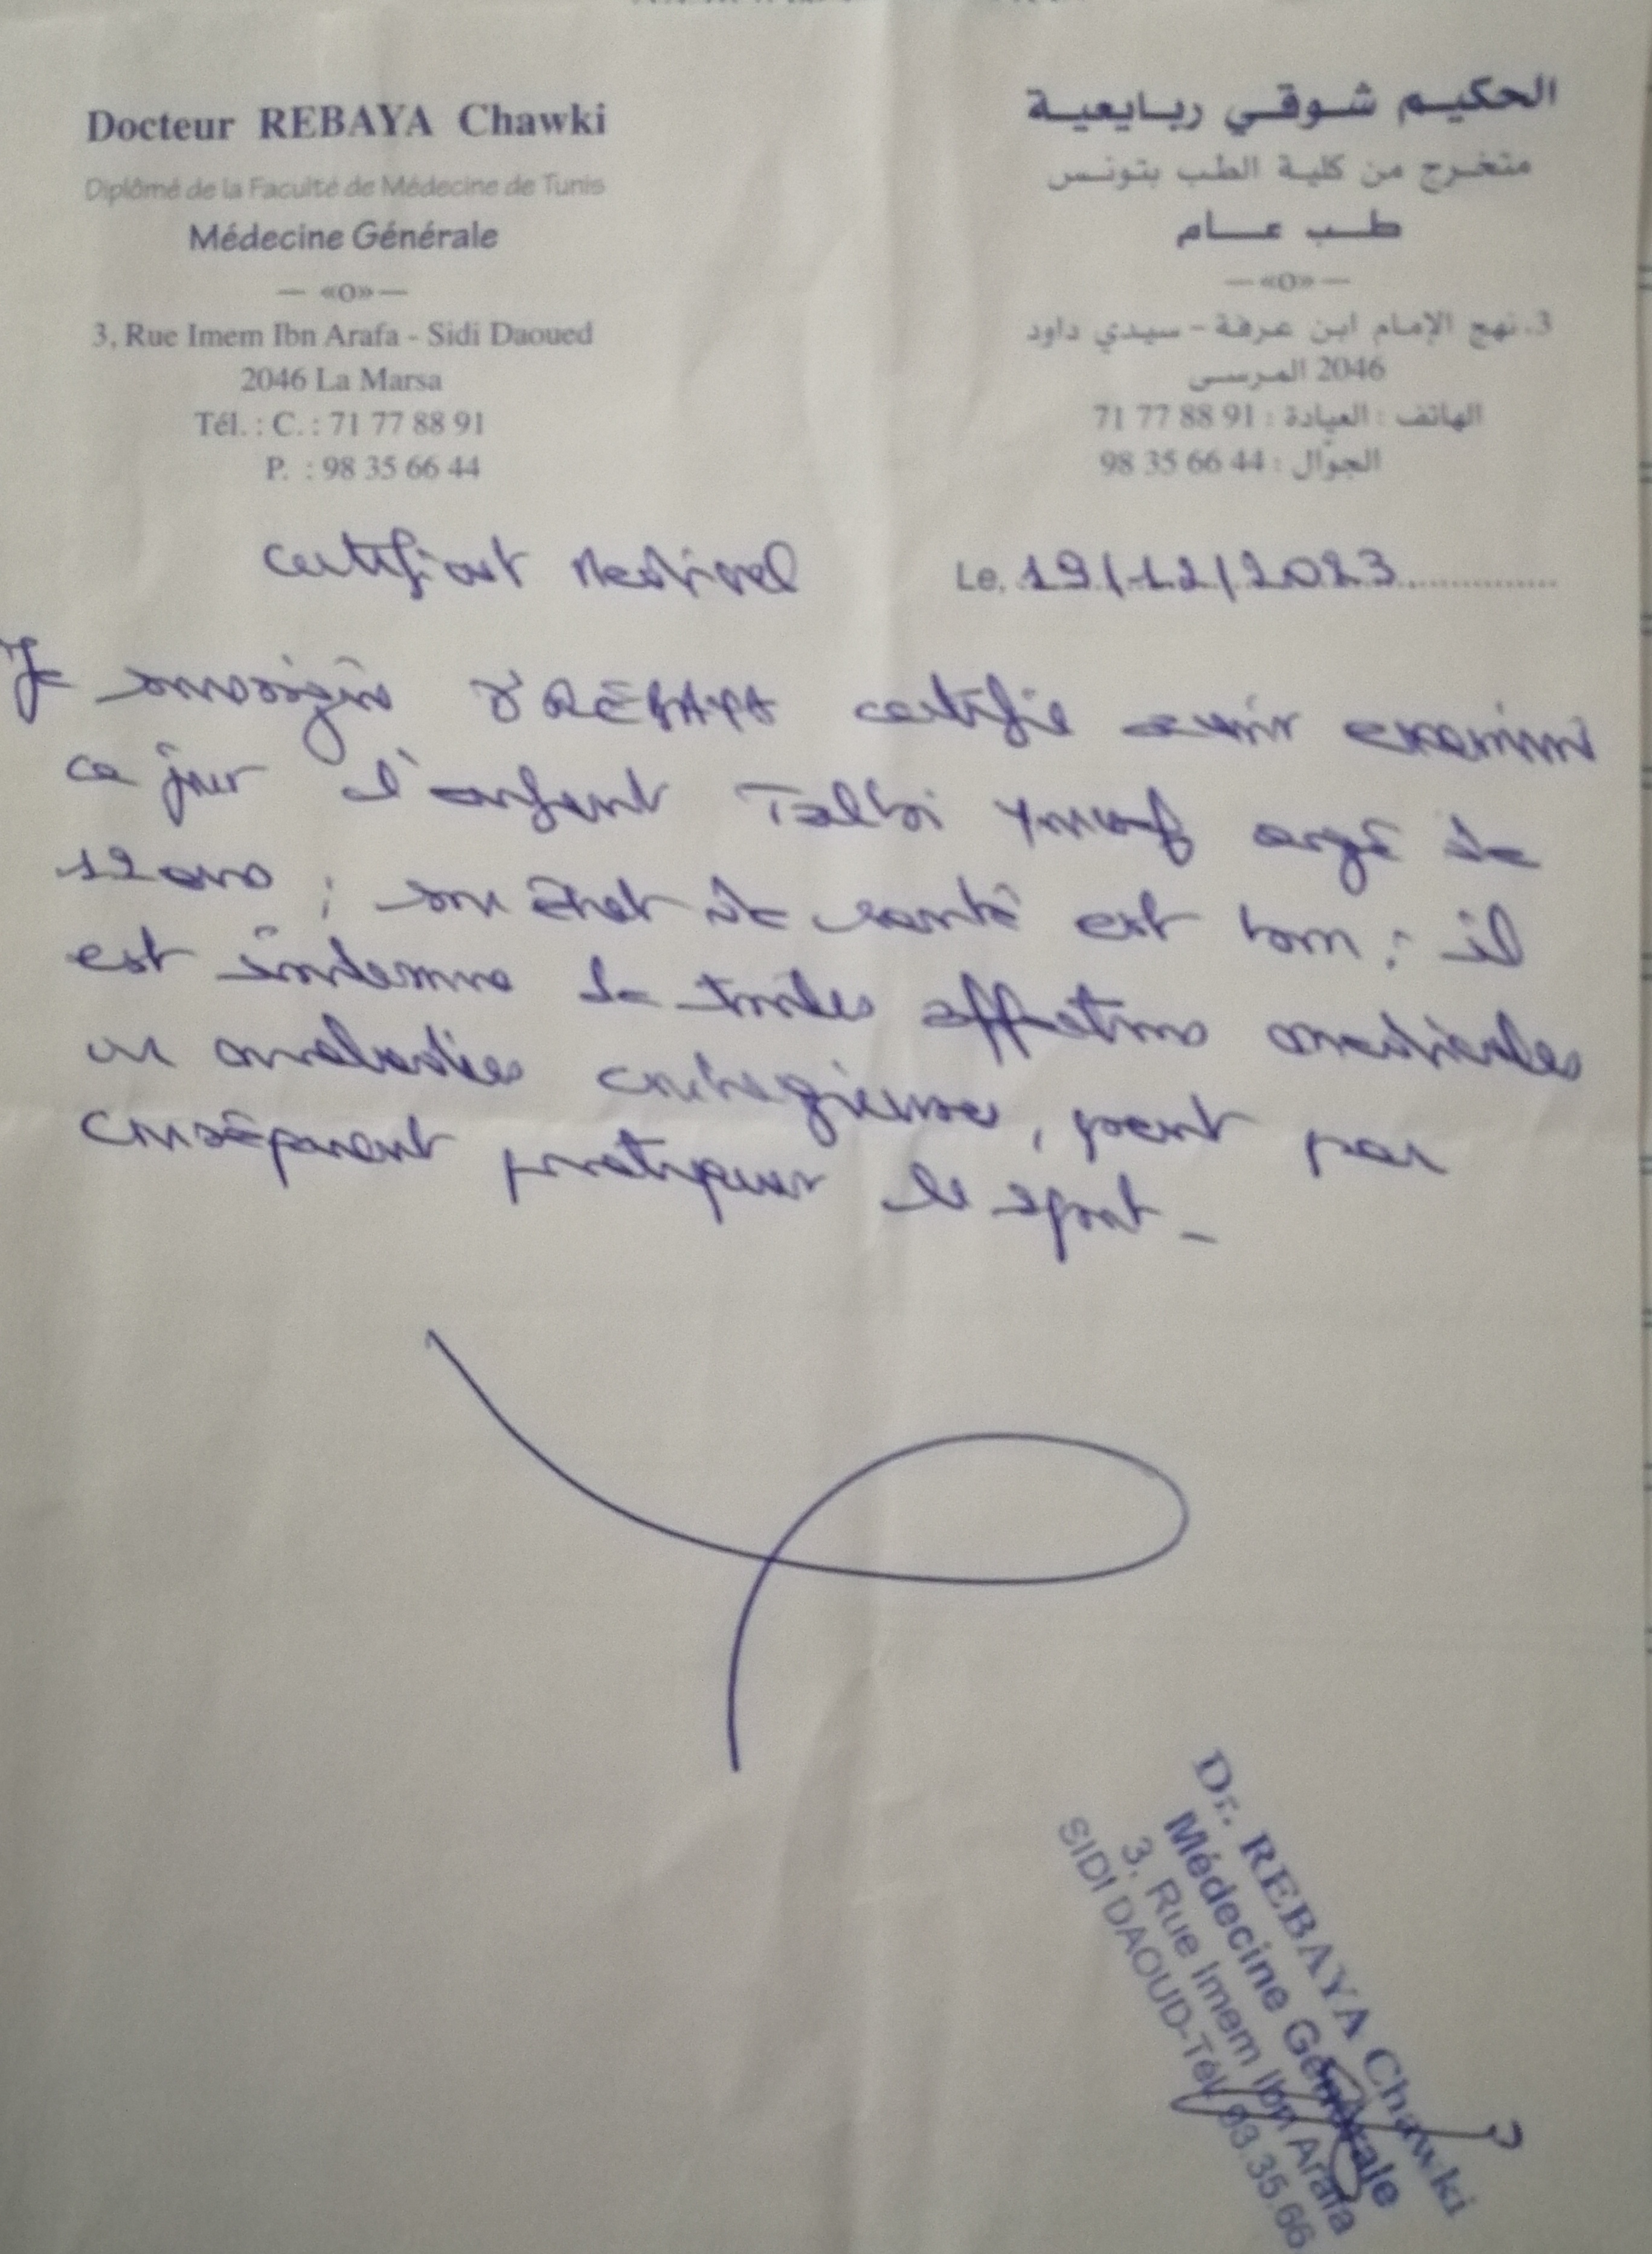 Docteur REBAYA Chawki
Diplômé de la Faculté de Médecine de Tunis
Médecine Générale
— «O» —
3, Rue Imem Ibn Arafa - Sidi Daoued
2046 La Marsa
Tél. : C. : 71 77 88 91
P. : 98 35 66 44
الحكيم شوقي ربايعية
متخرج من كلية الطب بتونس
طب عام
— «O» —
3، نهج الإمام ابن عرفة - سيدي داود
2046 المرسى
الهاتف : العيادة : 71 77 88 91
الجوّال : 98 35 66 44
certificat medical
Le, 19/12/2023
Je soussigné Dr REBAYA certifie avoir examiné
ce jour l'enfant Talbi Youssef agé de
12 ans ; son état de santé est bon : il
est indemne de toutes affections medicales
ou maladies contagieuses, peut par
conséquent pratiquer le sport -
Dr. REBAYA Chawki
Médecine Générale
3, Rue Imem Ibn Arafa
SIDI DAOUD-Tél. 35.66